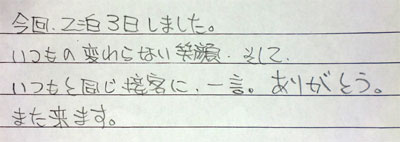 今回、2泊3日しました。
いつもの変わらない笑顔、そして、
いつもと同じ接客に、一言。ありがとう。
また来ます。